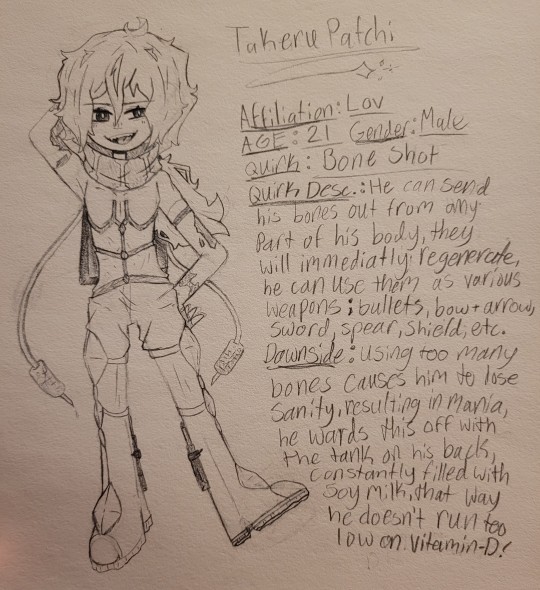 Takeru Patchi
Affiliation: Lov
AGE: 21 Gender: Male
Quirk: Bone Shot
Quirk Desc.: He can send
his bones out from any
Part of his body, they
will immediatly regenerate,
he can use them as various
weapons; bullets, bow + arrow,
sword, spear, shield, etc.
Downside: using too many
bones causes him to lose
Sanity, resulting in mania,
he wards this off with
the tank on his back,
constantly filled with
Soy milk, that way
he doesn't run too
low on vitamin-D!